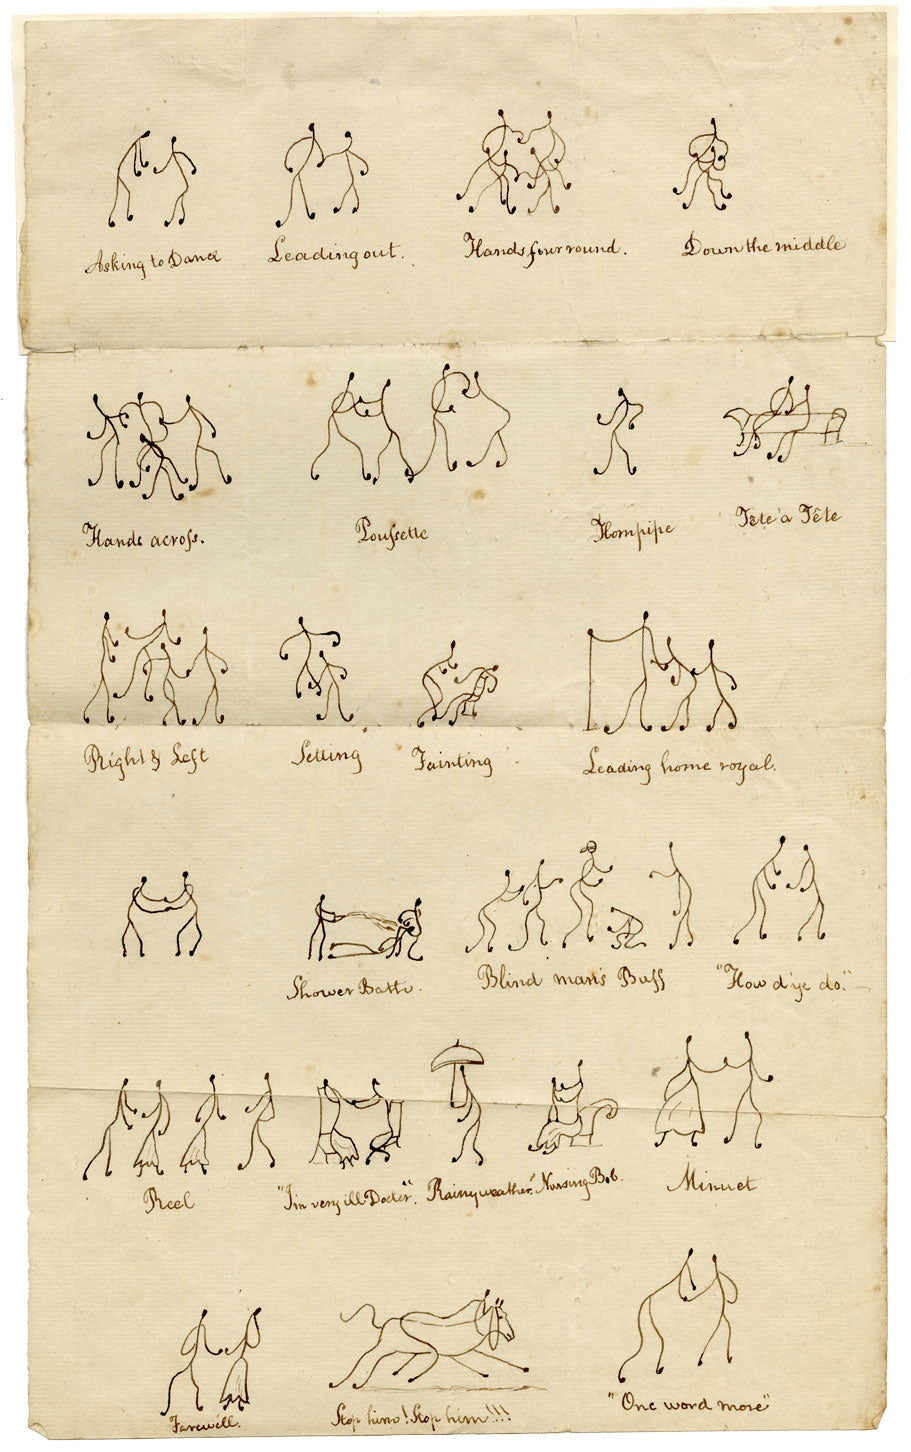 Asking to Dance
Leading out.
Hands four round.
Down the middle
Hands acroſs.
Pouſsette
Hornpipe
Tête à Tête
Right & Left
Setting
Fainting
Leading home royal.
Shower Bath.
Blind man's Buff
"How d'ye do."
Reel
"I'm very ill Doctor".
Rainy weather.
Nursing Bob.
Minuet
Farewell.
Stop him! Stop him!!!
"One word more"